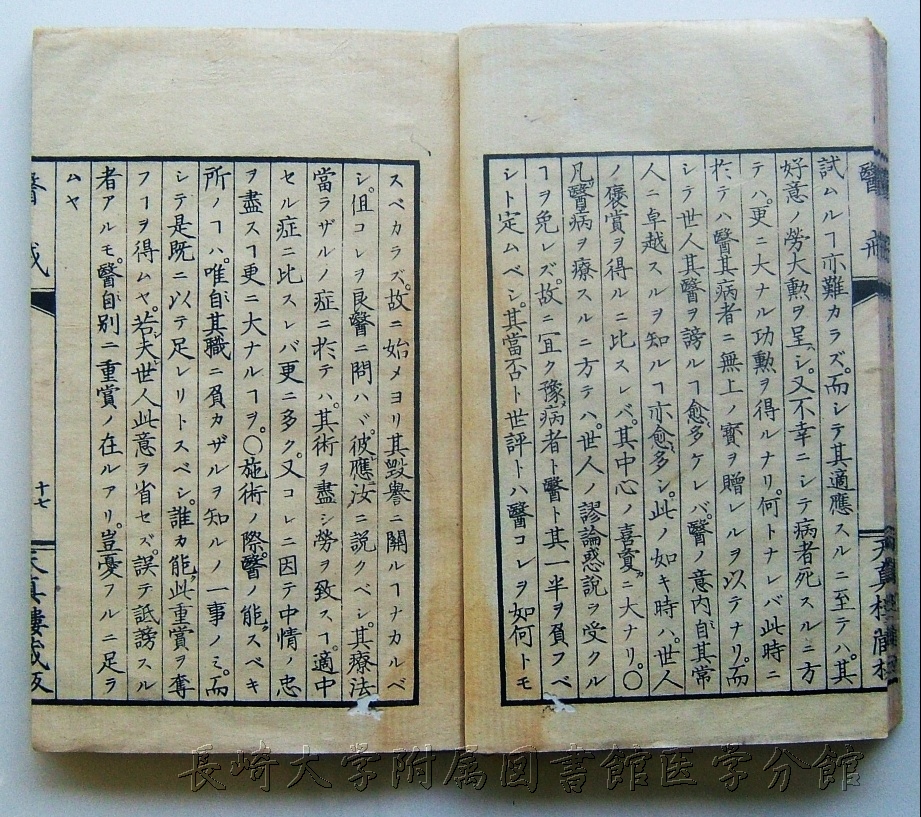 醫戒
試ムルヿ亦難カラズ。而シテ其適應スルニ至テハ。其
好意ノ勞大勲ヲ呈シ。又不幸ニシテ病者死スルニ方
テハ。更ニ大ナル功勲ヲ得ルナリ。何トナレバ此時ニ
於テハ醫其病者ニ無上ノ寳ヲ贈レルヲ以テナリ。而
シテ世人其醫ヲ謗ルヿ愈多ケレバ。醫ノ意内自其常
人ニ卓越スルヲ知ルヿ亦愈多シ。此ノ如キ時ハ。世人
ノ褒賞ヲ得ルニ比スレバ。其中心ノ喜更ニ大ナリ。○
凡醫病ヲ療スルニ方テハ。世人ノ謬論惑説ヲ受クル
ヿヲ免レズ。故ニ宜ク豫病者ト醫ト其一半ヲ負フベ
シト定ムベシ。其當否ト世評トハ醫コレヲ如何トモ
天真樓藏板
スベカラズ。故ニ始メヨリ其毀譽ニ關ルヿナカルベ
シ。但コレヲ良醫ニ問ハヾ。彼應汝ニ説クベシ。其療法
當ラザルノ症ニ於テハ。其術ヲ盡シ勞ヲ致スヿ。適中
セル症ニ比スレバ更ニ多ク。又コレニ因テ中情ノ忠
ヲ盡スヿ更ニ大ナルヿヲ。○施術ノ際。醫ノ能スベキ
所ノヿハ。唯自其職ニ負カザルヲ知ルノ一事ノミ。而
シテ是既ニ以テ足レリトスベシ。誰カ能此重賞ヲ奪
フヿヲ得ムヤ。若夫世人此意ヲ省セズ。誤テ詆謗スル
者アルモ。醫自別ニ重賞ノ在ルアリ。豈憂フルニ足ラ
ムヤ
醫戒
十七
天真樓藏板
長崎大学附属図書館医学分館